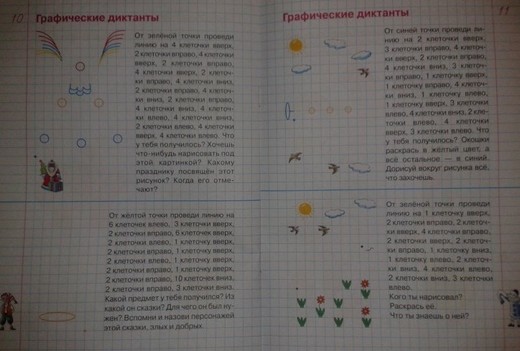 10
Графические диктанты
От зелёной точки проведи
линию на 4 клеточки вверх,
2 клеточки вправо, 4 клеточки
вверх, 2 клеточки вправо,
4 клеточки вверх, 2 клеточ-
ки вправо, 4 клеточки вниз,
2 клеточки вправо, 4 клеточ-
ки вниз, 2 клеточки вправо,
4 клеточки вниз, 4 клеточ-
ки влево, 4 клеточки вниз,
2 клеточки влево, 4 клеточки
вверх, 4 клеточки влево. Что
у тебя получилось? Хочешь
что-нибудь нарисовать под
этой картинкой? Какому
празднику посвящён этот
рисунок? Когда его отме-
чают?
От жёлтой точки проведи линию на
6 клеточек влево, 3 клеточки вверх,
2 клеточки вправо, 6 клеточек вверх,
2 клеточки вправо, 1 клеточку вверх,
2 клеточки вправо, 1 клеточку вверх,
2 клеточки вправо, 1 клеточку вверх,
2 клеточки вправо, 10 клеточек вниз,
2 клеточки вправо, 3 клеточки вниз.
Какой предмет у тебя получился? Из
какой он сказки? Для чего он был ну-
жен? Вспомни и назови персонажей
этой сказки, злых и добрых.
Графические диктанты
11
От синей точки проведи ли-
нию на 2 клеточки вверх,
3 клеточки вправо, 4 клеточ-
ки вверх, 2 клеточки вправо,
4 клеточки вниз, 3 клеточ-
ки вправо, 1 клеточку вверх,
1 клеточку вправо, 4 клеточ-
ки вниз, 1 клеточку влево,
1 клеточку вверх, 3 клеточки
влево, 4 клеточки вниз, 2 кле-
точки влево, 4 клеточки
вверх, 3 клеточки влево. Что
у тебя получилось? Окошки
раскрась в жёлтый цвет, а
всё остальное — в синий.
Дорисуй вокруг рисунка всё,
что захочешь.
От зелёной точки проведи
линию на 1 клеточку вверх,
2 клеточки вправо, 2 клеточ-
ки вверх, 4 клеточки вправо,
2 клеточки вверх, 2 клеточ-
ки вправо, 1 клеточку вниз,
1 клеточку влево, 2 клеточ-
ки вниз, 4 клеточки
влево.
Кого ты нарисовал?
Раскрась её.
Что ты знаешь о ней?